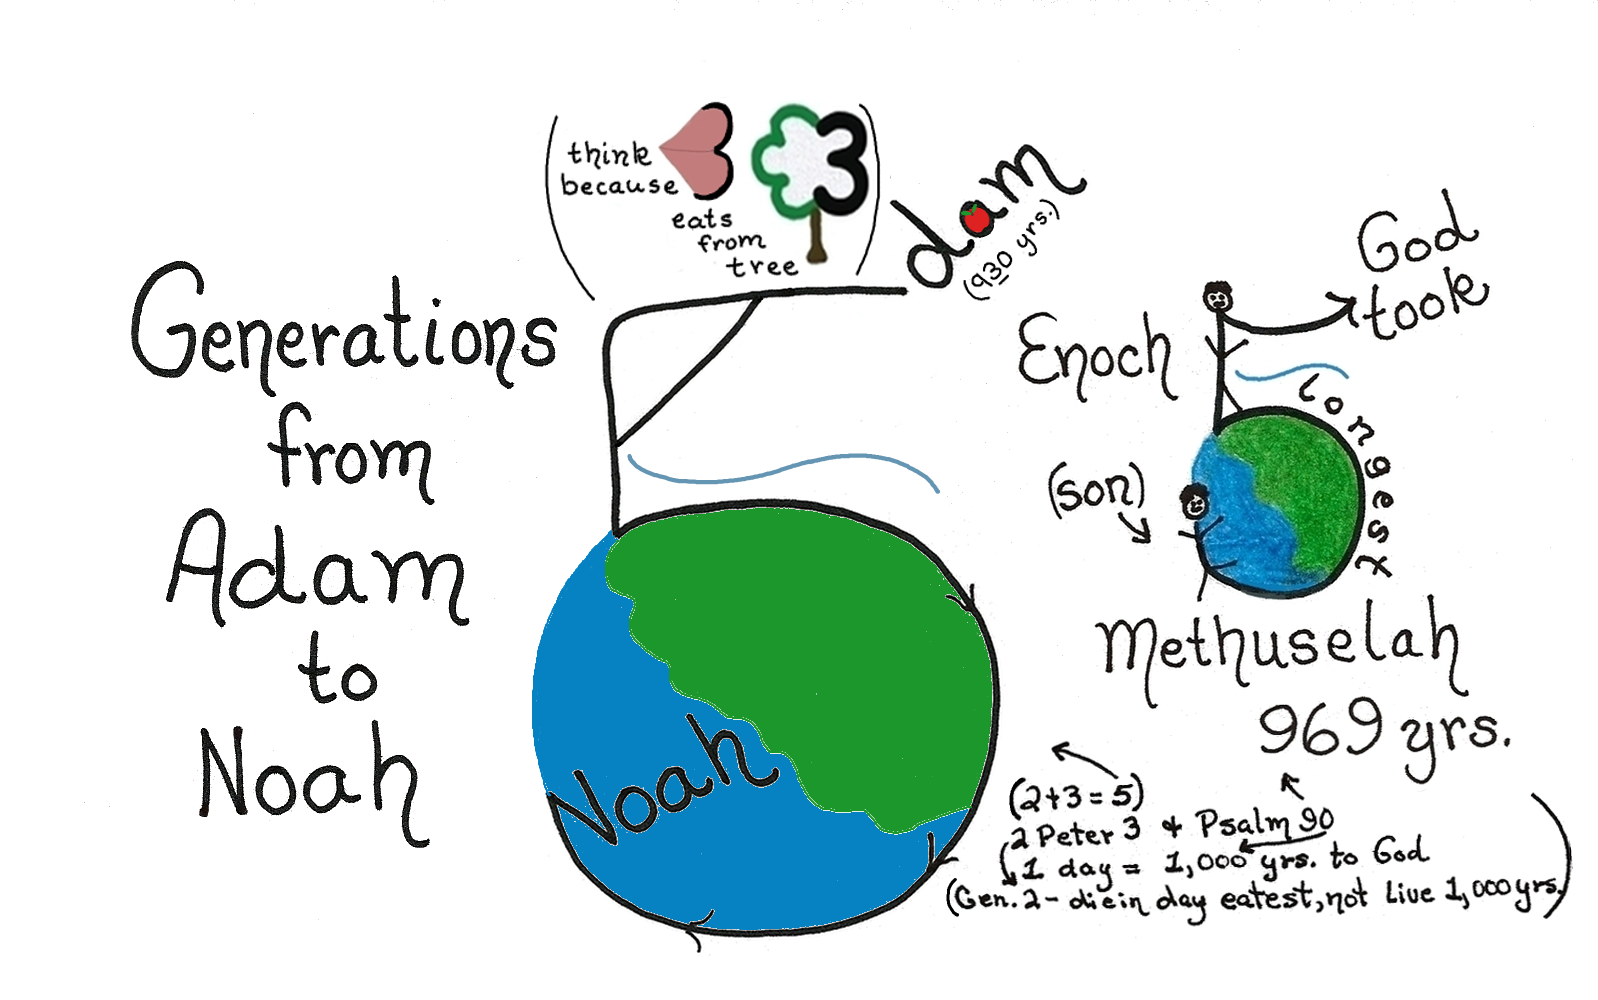 Generations
from
Adam
to
Noah
(think
because
eats
from
tree)
3
dam
(930 yrs.)
Noah
Enoch
God
took
longest
(son)
Methuselah
969 yrs.
(2+3=5)
2 Peter 3 & Psalm 90
1 day = 1,000 yrs. to God
(Gen. 2 - die in day eatest, not Live 1,000 yrs.)